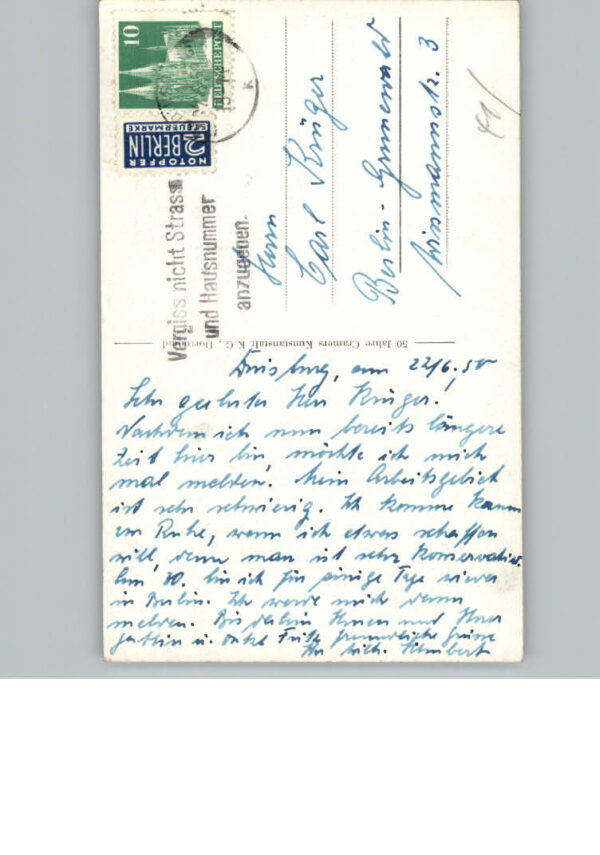 10
DEUTSCHE POST
NOTOPFER
2 BERLIN
STEUERMARKE
Vergiss nicht Strasse
und Hausnummer
anzugeben.
Herrn
Carl Krüger
Berlin-Grunewald
Wissmannstr. 3
50 Jahre Cramers Kunstanstalt K.G., Dortmund
Duisburg, am 22/6.50
Sehr geehrter Herr Krüger!
Nachdem ich nun bereits längere
Zeit hier bin, möchte ich mich
mal melden. Mein Arbeitsgebiet
ist sehr schwierig. Ich komme kaum
zur Ruhe, wenn ich etwas schaffen
will, denn man ist sehr konservativ.
Am 30. bin ich für einige Tage wieder
in Berlin. Ich werde mich dann
melden. Bis dahin Ihnen und Ihrer
Gattin u. Onkel Fritz freundliche Grüsse
Ihr